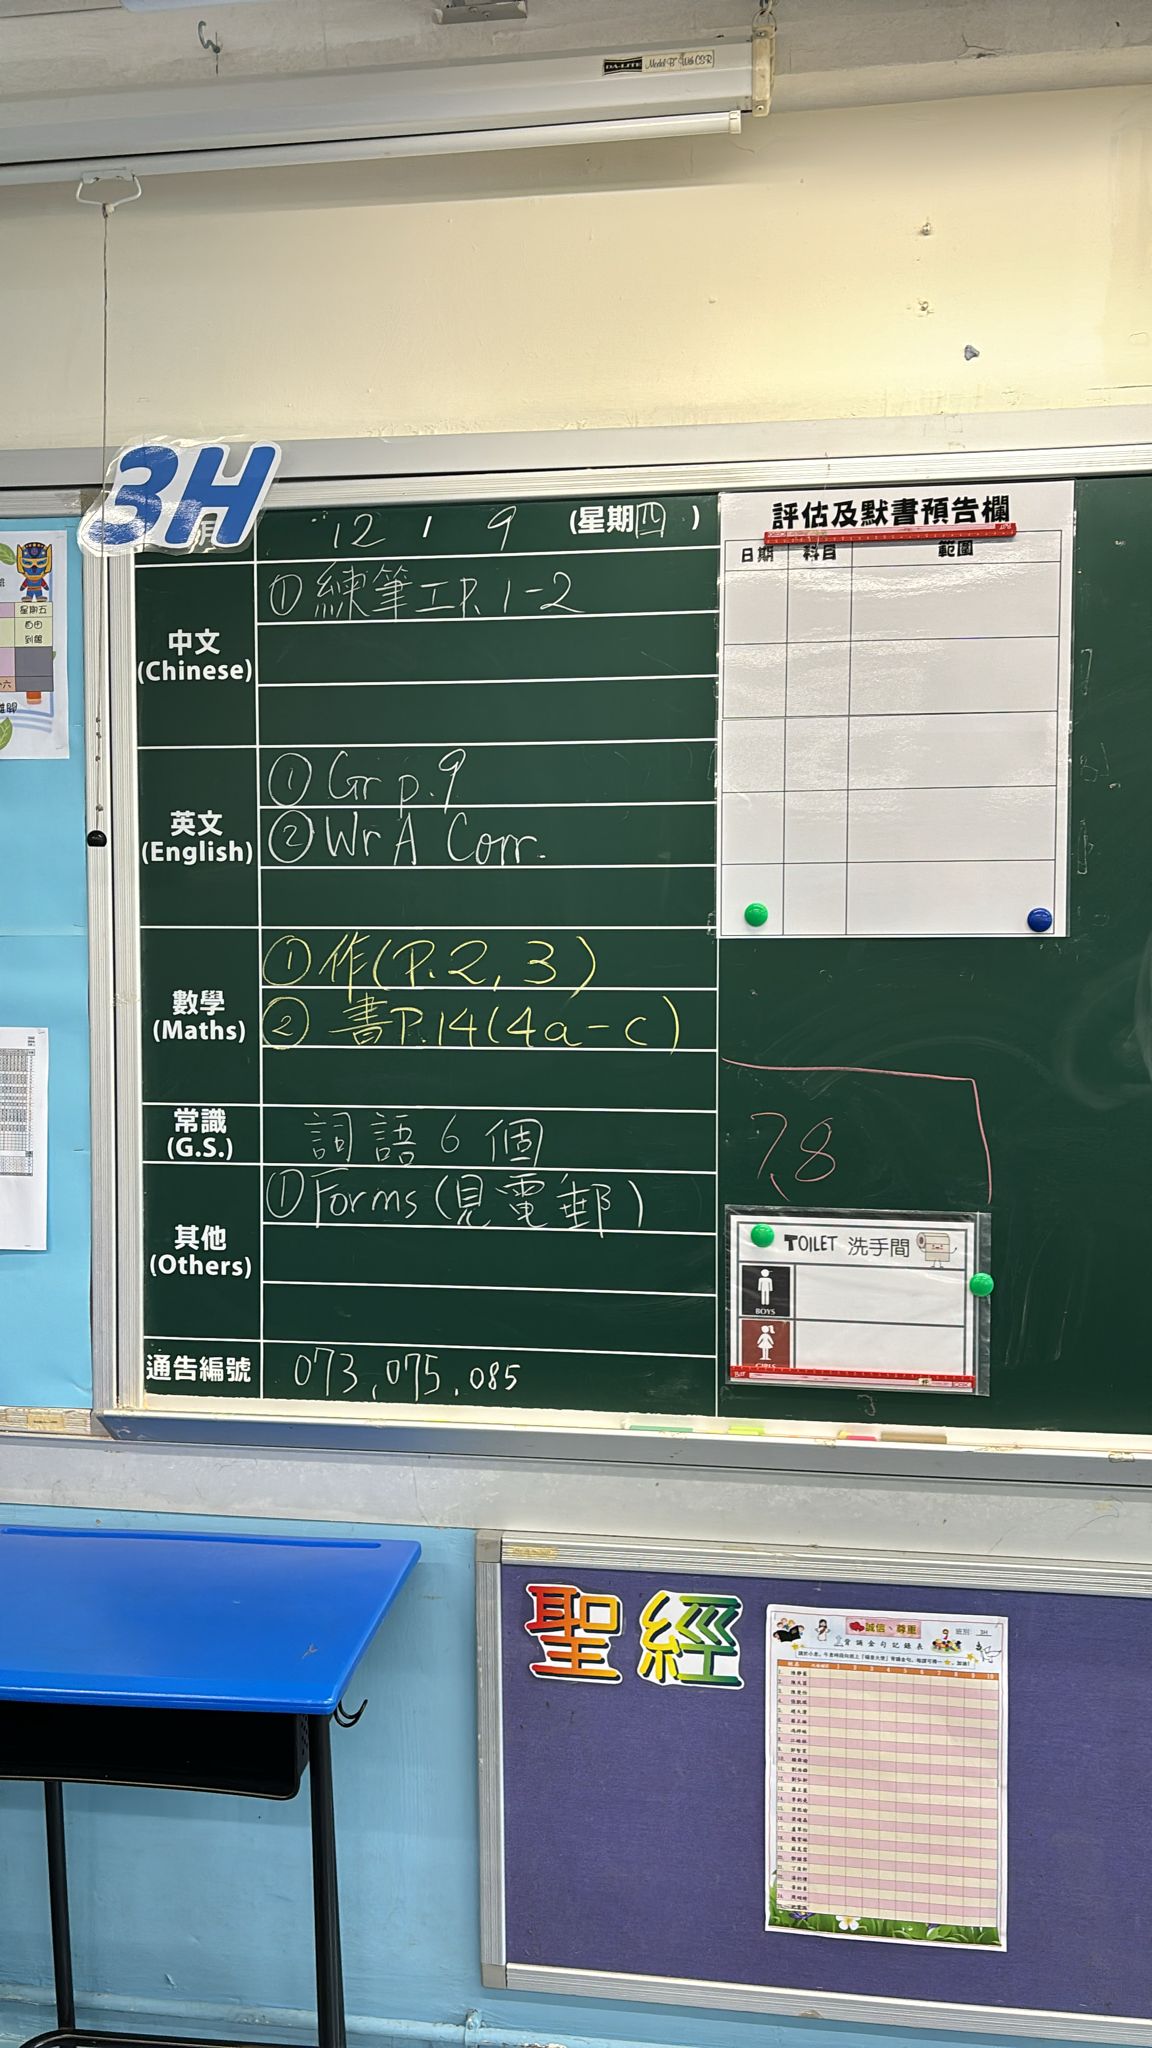 DA-LITE Model "B" With CSR
3H
12 / 9 (星期四)
中文
(Chinese)
① 練筆工P.1-2
英文
(English)
① Gr p.9
② Wr A Corr.
數學
(Maths)
① 作(P.2,3)
② 書P.14(4a-c)
常識
(G.S.)
詞語6個
其他
(Others)
① Forms(見電郵)
通告編號
073,075,085
評估及默書預告欄
日期 科目 範圍
78
TOILET 洗手間
BOYS
GIRLS
星期五
自由
到館
聖經
誠信、尊重
班別: 3H
背誦金句記錄表
1 2 3 4 5 6 7 8 9 10